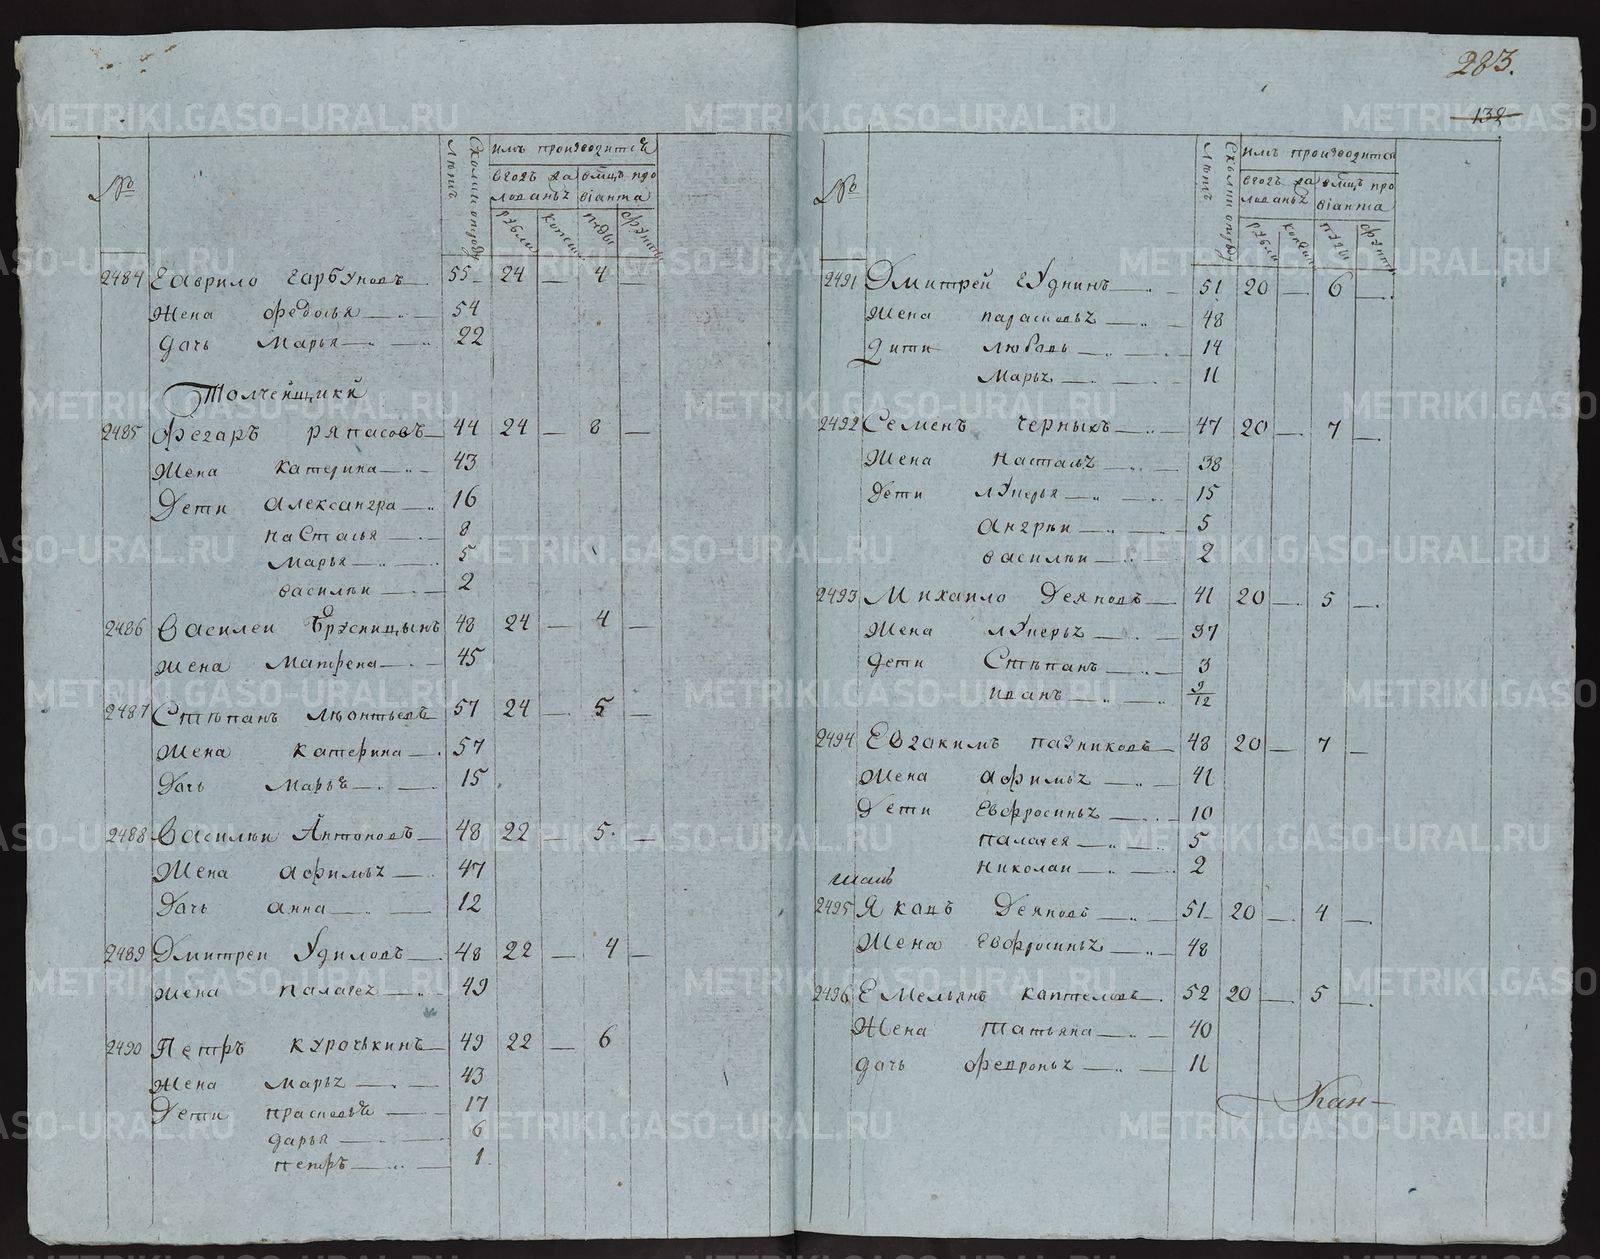 283.
132
№
Сколки отроду
лѣтъ
имъ производится
вгодъ жалованья
вмцъ провіанта
рубли
копеики
пуды
фунты
2484 Гаврило Гарбуновъ 55 24 — 4 —
Жена Федосья 54
дочь Марья 22
Толчейщики
2485 Федаръ Ряпасовъ 44 24 — 8 —
Жена Катерина 43
Дети Александра 16
Настасья 8
Марья 5
Василѣи 2
2486 Василеи Брусницынъ 48 24 — 4 —
Жена Матрена 45
2487 Стѣпанъ Лѣонтьевъ 57 24 — 5 —
Жена Катерина 57
Дочь Марья 15
2488 Василѣи Антоновъ 48 22 — 5 —
Жена Афимья 47
Дочь Анна 12
2489 Дмитреи Удиловъ 48 22 — 4 —
Жена Палагея 49
2490 Петръ Курочькинъ 49 22 — 6
Жена Марья 43
Дети Прасковья 17
Дарья 6
Петръ 1
№
лѣтъ
Сколки отроду
имъ производится
вгодъ жалованья
вмцъ провіанта
рубли
копеики
пуды
фунты
2491 Дмитрей Гуднинъ 51 20 — 6 —
Жена Парасковья 48
Дити Любовь 14
Марья 11
2492 Семенъ Черныхъ 47 20 — 7 —
Жена Настасья 38
Дети Лукерья 15
Андрѣи 5
Василѣи 2
2493 Михаило Деяновъ 41 20 — 5 —
Жена Лукерья 37
Дети Стѣпанъ 3
Иванъ 9/12
2494 Евдакимъ Пазниковъ 48 20 — 7 —
Жена Афимья 41
Дети Евфросинья 10
Палагея 5
Николаи 2
2495 Яковъ Деяновъ 51 20 — 4 —
Жена Евфросинья 48
2496 Емельянъ Каптеловъ 52 20 — 5 —
Жена Татьяна 40
Дочь Федронья 11
Кан-
METRIKI.GASO-URAL.RU